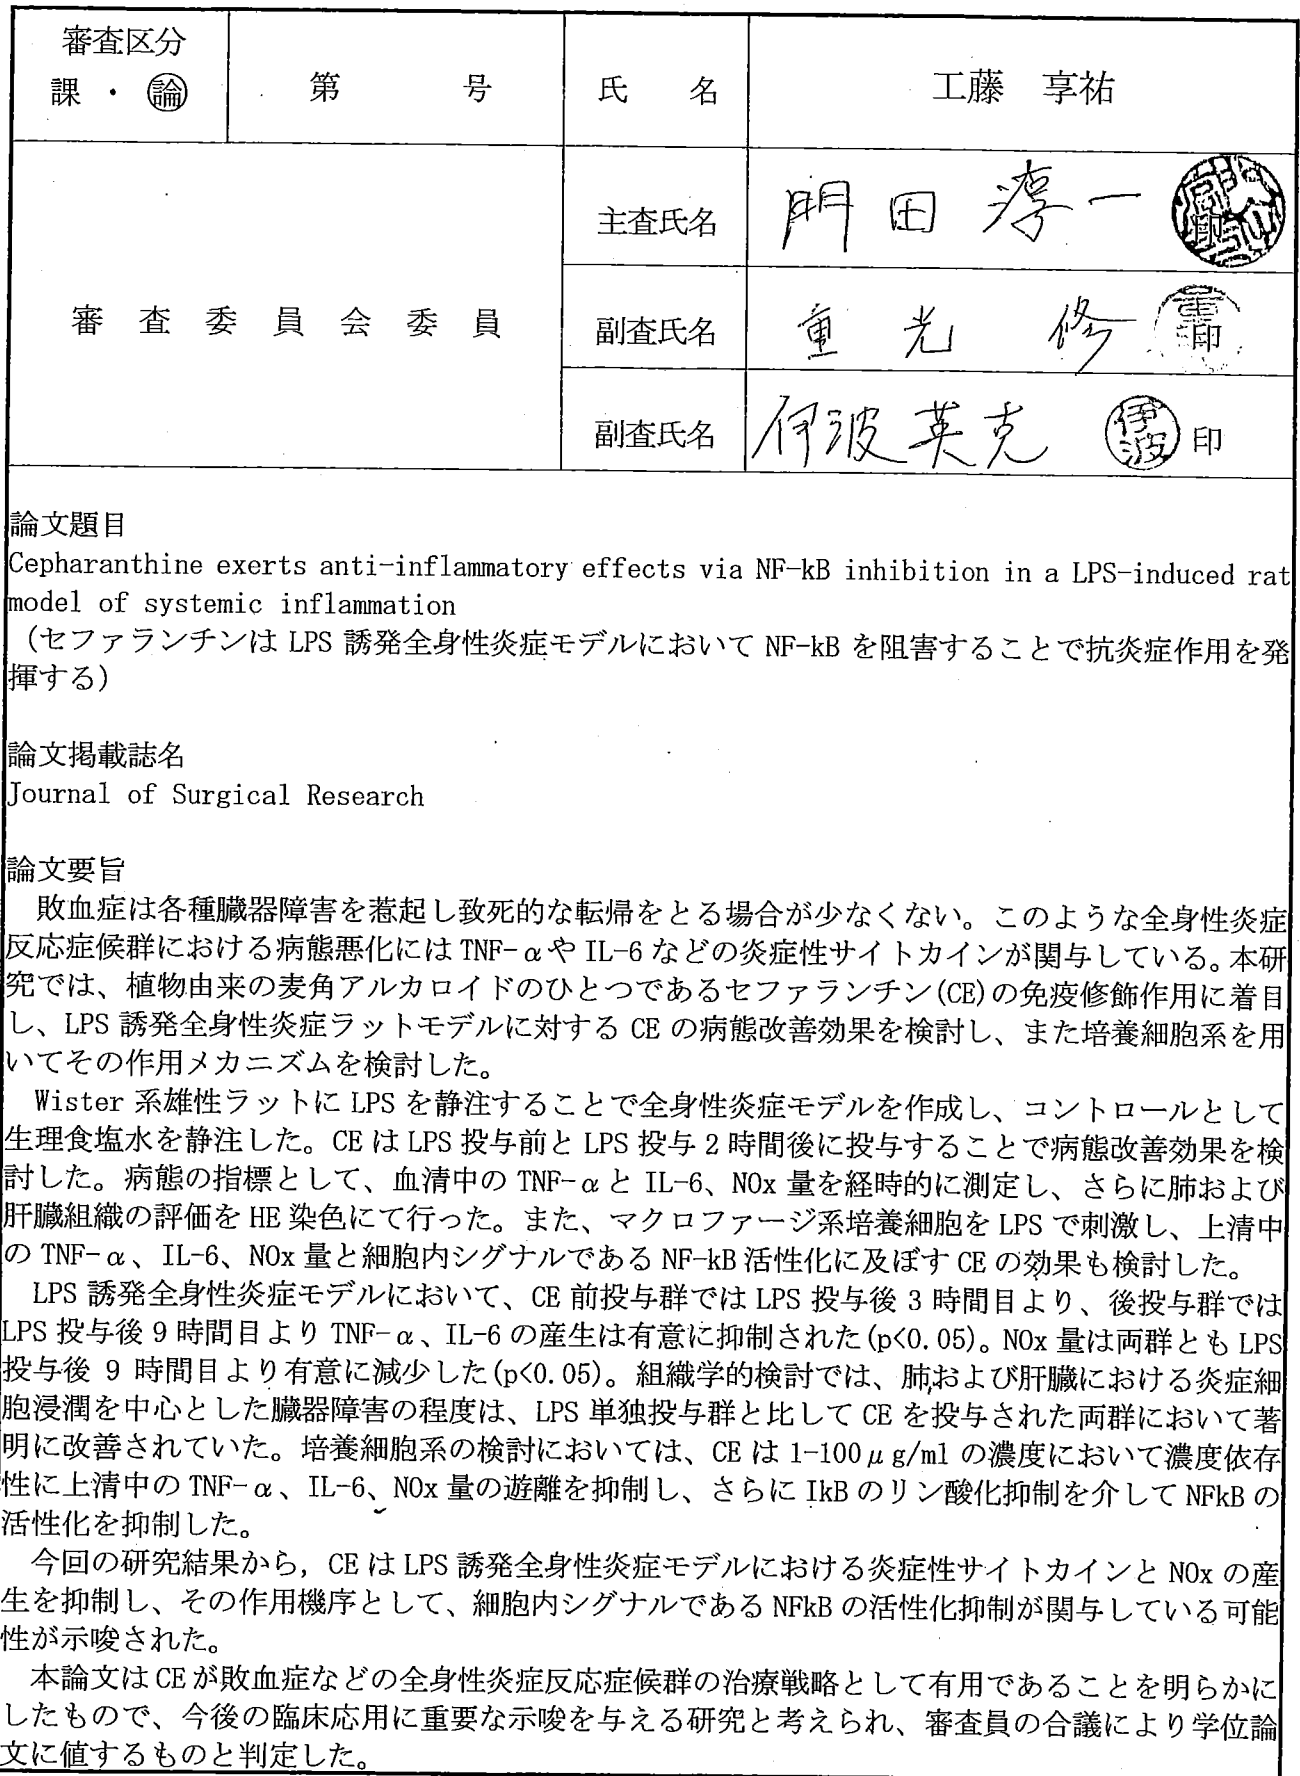 審査区分
課 ・ 論
第 号
氏 名
工藤 享祐
審 査 委 員 会 委 員
主査氏名
門田 淳一
印
副査氏名
重光 修
印
副査氏名
伊波英克
伊波
印
論文題目
Cepharanthine exerts anti-inflammatory effects via NF-kB inhibition in a LPS-induced rat
model of systemic inflammation
(セファランチンは LPS 誘発全身性炎症モデルにおいて NF-kB を阻害することで抗炎症作用を発
揮する)
論文掲載誌名
Journal of Surgical Research
論文要旨
敗血症は各種臓器障害を惹起し致死的な転帰をとる場合が少なくない。このような全身性炎症
反応症候群における病態悪化には TNF-αや IL-6 などの炎症性サイトカインが関与している。本研
究では、植物由来の麦角アルカロイドのひとつであるセファランチン(CE)の免疫修飾作用に着目
し、LPS 誘発全身性炎症ラットモデルに対する CE の病態改善効果を検討し、また培養細胞系を用
いてその作用メカニズムを検討した。
Wister 系雄性ラットに LPS を静注することで全身性炎症モデルを作成し、コントロールとして
生理食塩水を静注した。CE は LPS 投与前と LPS 投与 2 時間後に投与することで病態改善効果を検
討した。病態の指標として、血清中の TNF-αと IL-6、NOx 量を経時的に測定し、さらに肺および
肝臓組織の評価を HE 染色にて行った。また、マクロファージ系培養細胞を LPS で刺激し、上清中
の TNF-α、IL-6、NOx 量と細胞内シグナルである NF-kB 活性化に及ぼす CE の効果も検討した。
LPS 誘発全身性炎症モデルにおいて、CE 前投与群では LPS 投与後 3 時間目より、後投与群では
LPS 投与後 9 時間目より TNF-α、IL-6 の産生は有意に抑制された(p<0.05)。NOx 量は両群とも LPS
投与後 9 時間目より有意に減少した(p<0.05)。組織学的検討では、肺および肝臓における炎症細
胞浸潤を中心とした臓器障害の程度は、LPS 単独投与群と比して CE を投与された両群において著
明に改善されていた。培養細胞系の検討においては、CE は 1-100μg/ml の濃度において濃度依存
性に上清中の TNF-α、IL-6、NOx 量の遊離を抑制し、さらに IkB のリン酸化抑制を介して NFkB の
活性化を抑制した。
今回の研究結果から, CE は LPS 誘発全身性炎症モデルにおける炎症性サイトカインと NOx の産
生を抑制し、その作用機序として、細胞内シグナルである NFkB の活性化抑制が関与している可能
性が示唆された。
本論文は CE が敗血症などの全身性炎症反応症候群の治療戦略として有用であることを明らかに
したもので、今後の臨床応用に重要な示唆を与える研究と考えられ、審査員の合議により学位論
文に値するものと判定した。